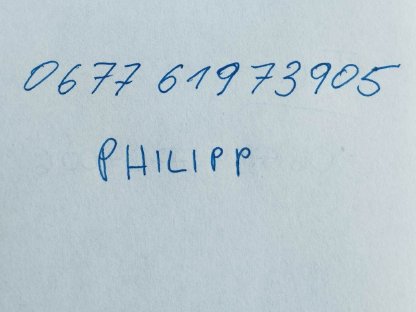 0677 61973905
PHILIPP